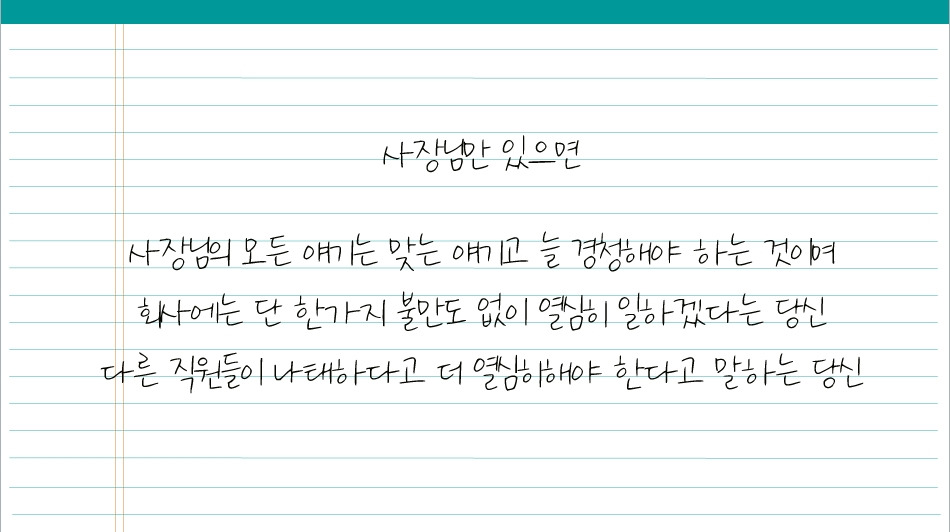 사장님만 있으면
사장님의 모든 얘기는 맞는 얘기고 늘 경청해야 하는 것이며
회사에는 단 한가지 불만도 없이 열심히 일하겠다는 당신
다른 직원들이 나태하다고 더 열심히해야 한다고 말하는 당신